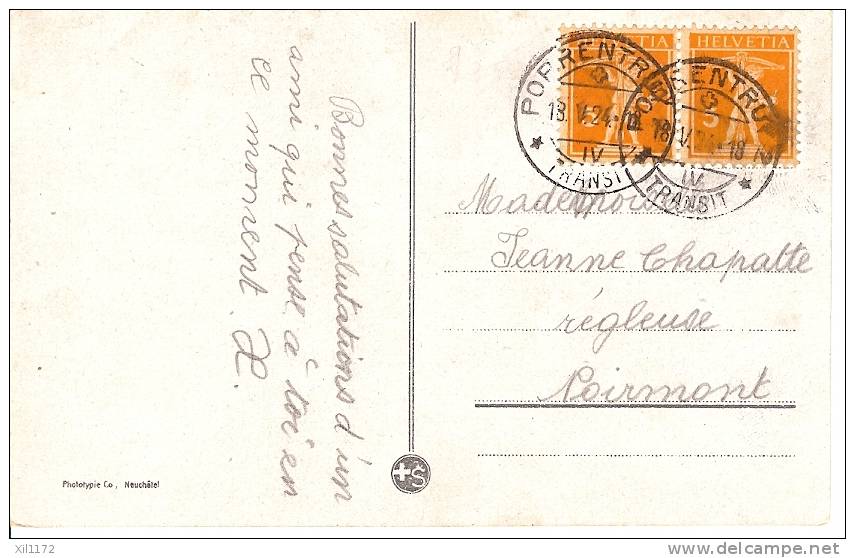 Bonnes salutations d'un
ami qui pense à toi en
ce moment. X.
HELVETIA
HELVETIA
5
PORRENTRUY
18.V.24
IV
TRANSIT
PORRENTRUY
18.V.24-18
IV
TRANSIT
Mademoiselle
Jeanne Chapatte
régleuse
Noirmont
Phototypie Co, Neuchâtel
+S
xil1172
delcampe.net